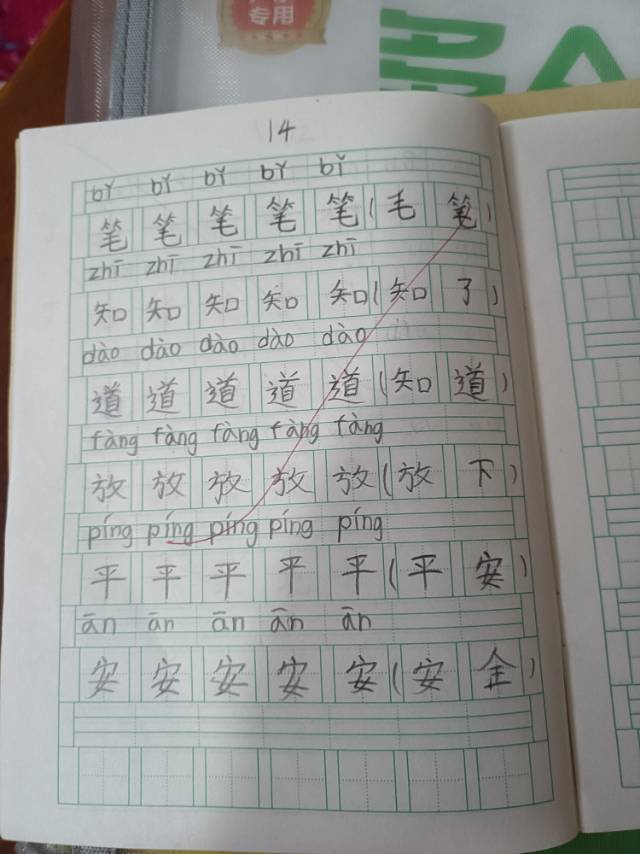 专用
14
bǐ bǐ bǐ bǐ bǐ
笔 笔 笔 笔 笔(毛 笔)
zhī zhī zhī zhī zhī
知 知 知 知 知(知 了)
dào dào dào dào dào
道 道 道 道 道(知 道)
fàng fàng fàng fàng fàng
放 放 放 放 放(放 下)
píng píng píng píng píng
平 平 平 平 平(平 安)
ān ān ān ān ān
安 安 安 安 安(安 全)